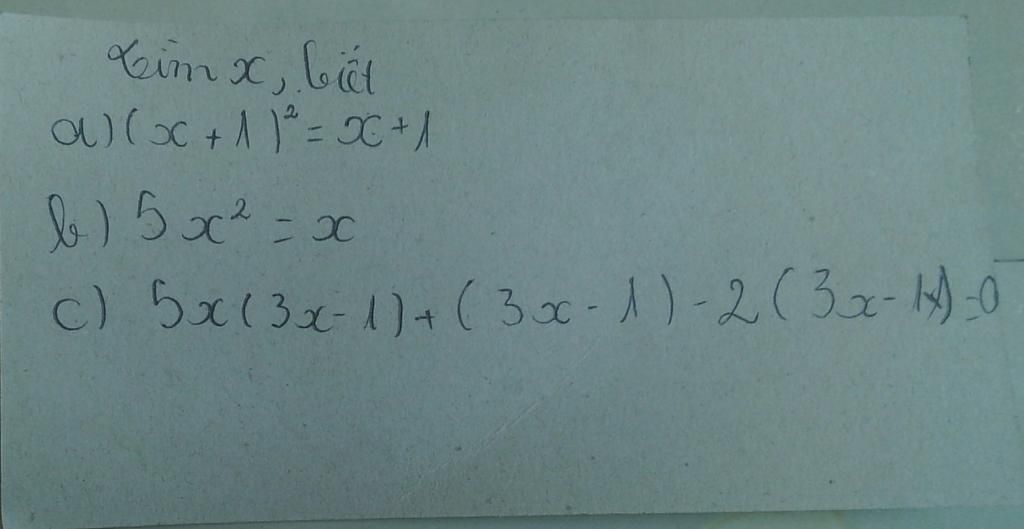 Tìm x, biết
a) (x + 1)² = x + 1
b) 5x² = x
c) 5x(3x - 1) + (3x - 1) - 2(3x - 1) = 0